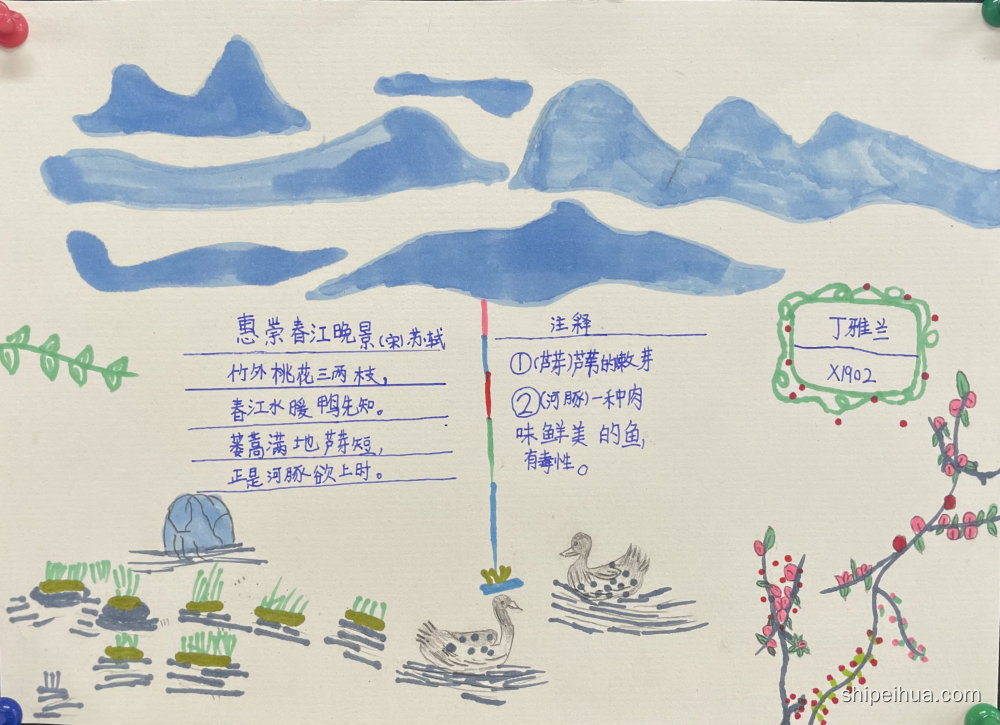 惠崇春江晚景(宋)苏轼
竹外桃花三两枝，
春江水暖鸭先知。
蒌蒿满地芦芽短，
正是河豚欲上时。
注释
①(芦芽)芦苇的嫩芽
②(河豚)一种肉
味鲜美的鱼，
有毒性。
丁雅兰
X1902
shipeihua.com